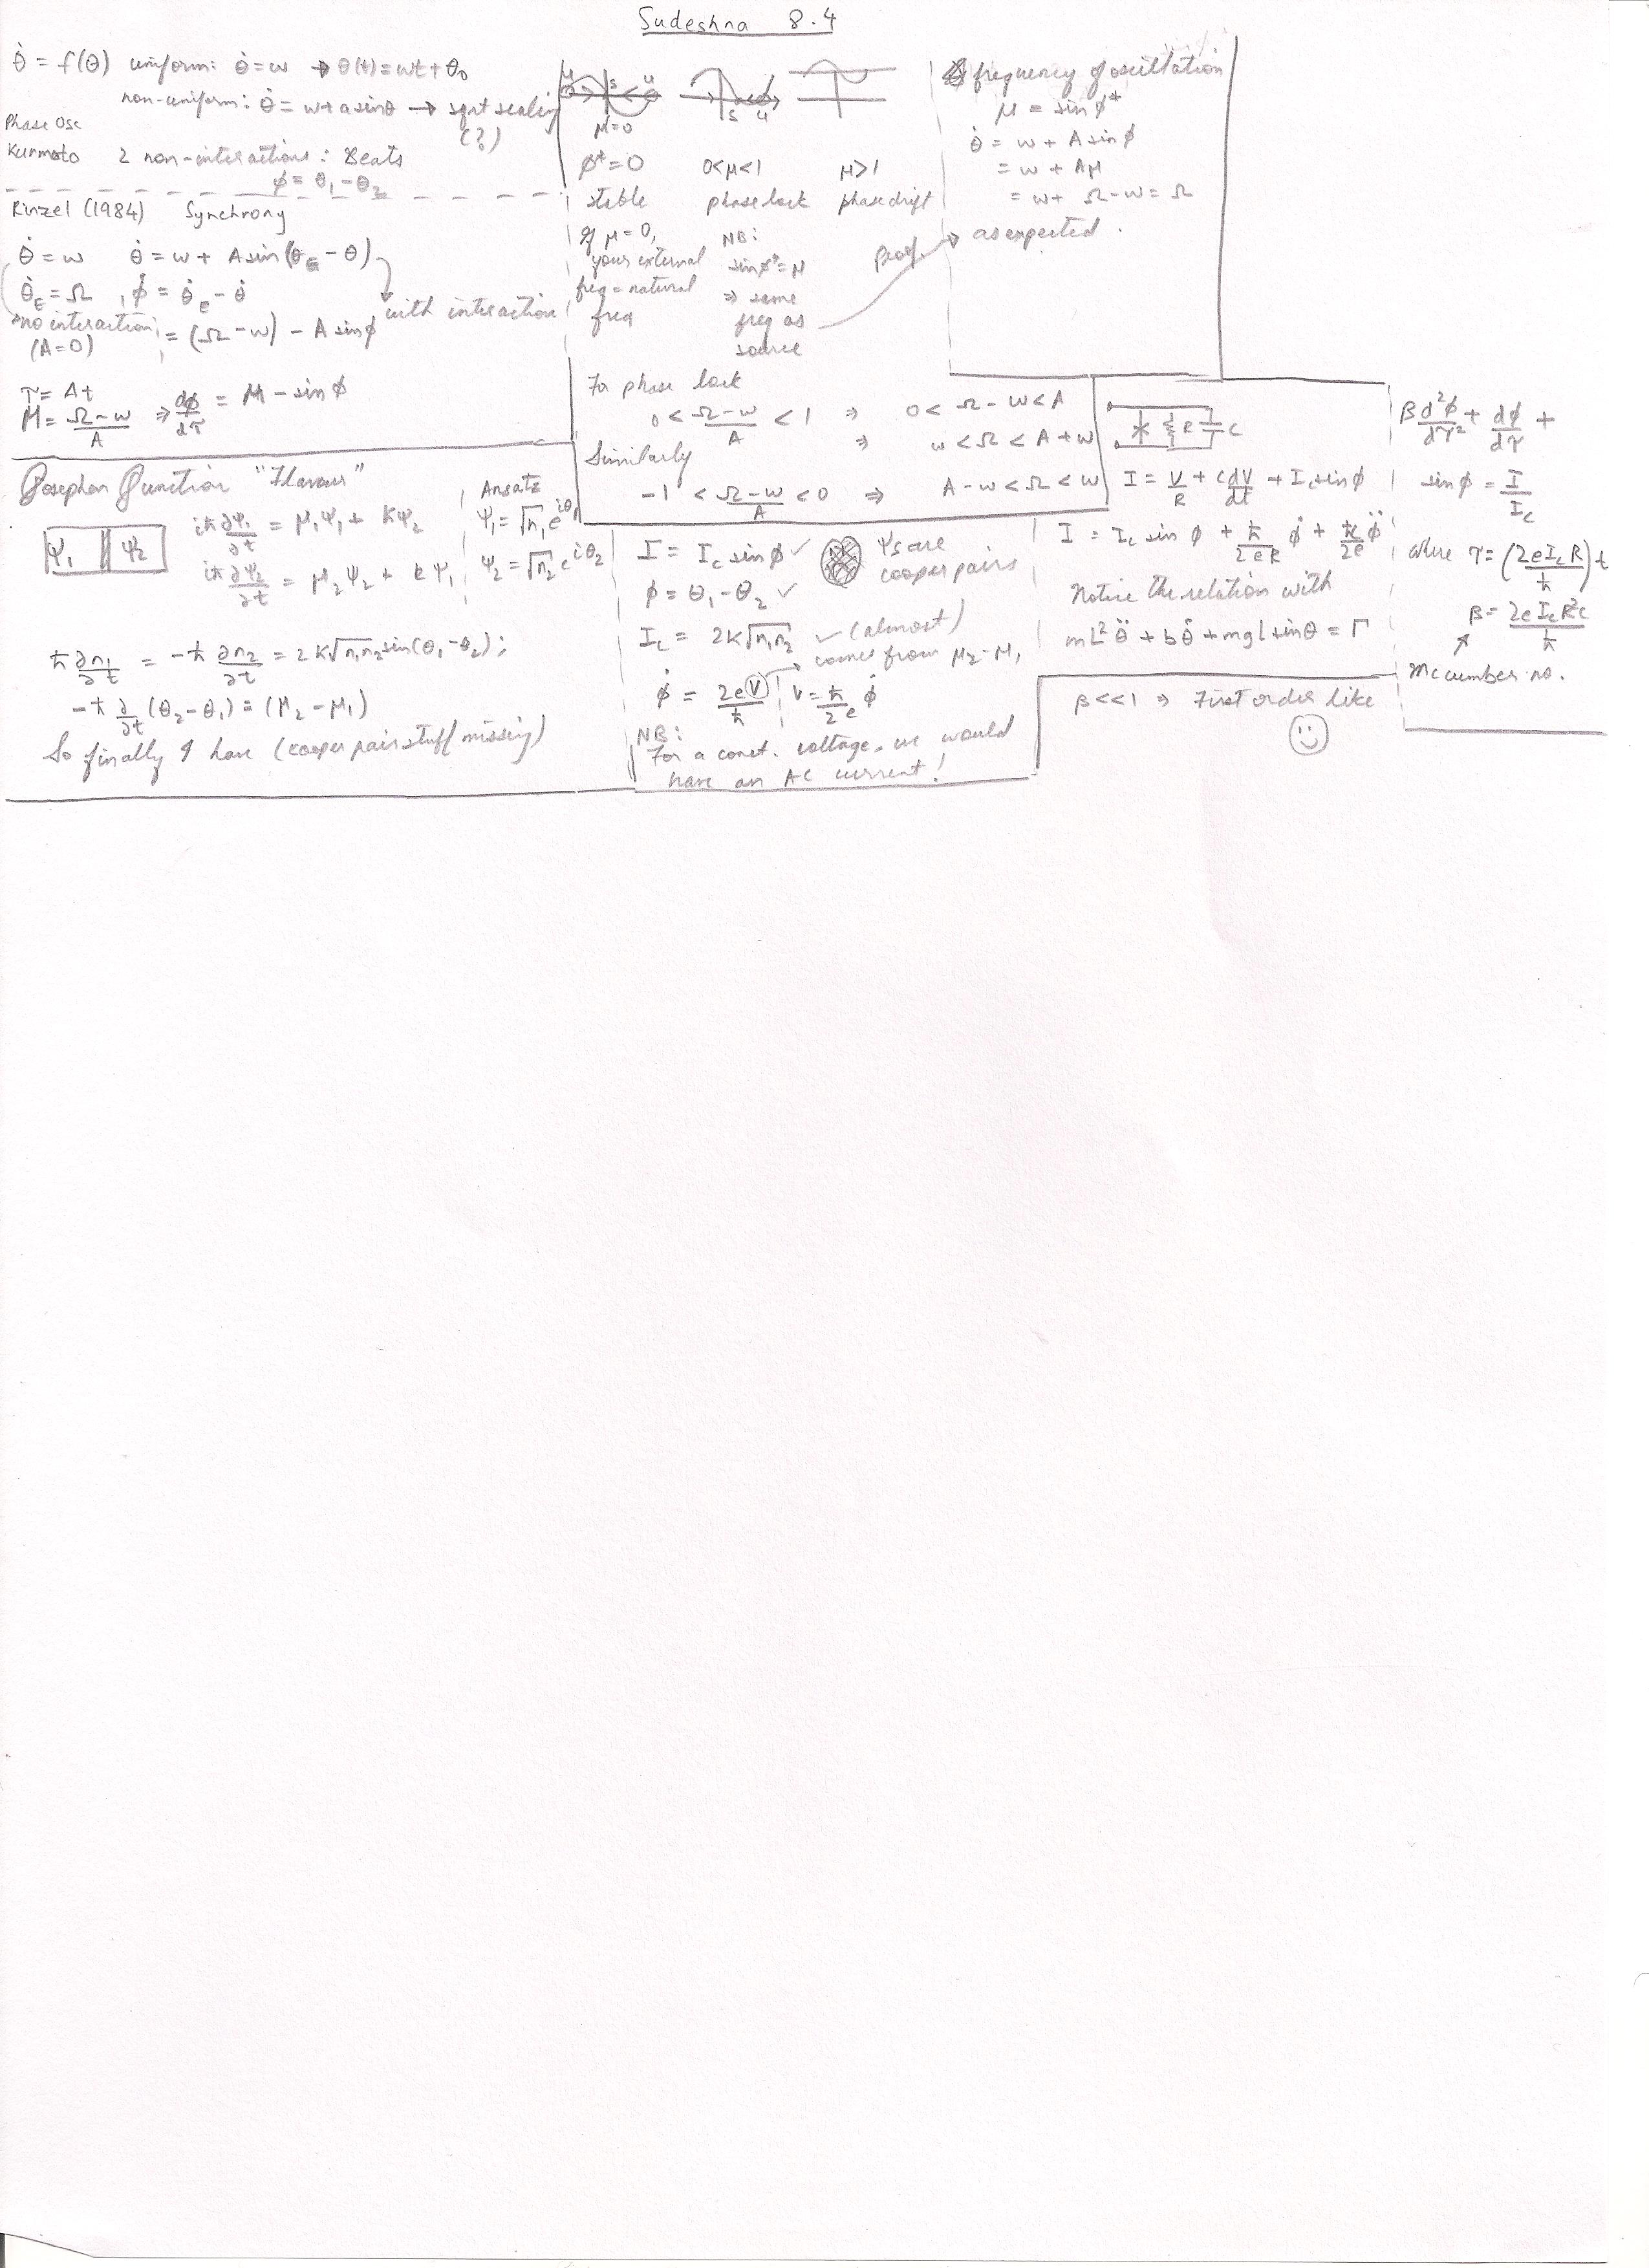 Sudeshna 8.4
θ̇ = f(θ) uniform: θ̇ = w → θ(t) = wt + θ₀
non-uniform: θ̇ = w + a sinθ → sqrt scaling
(?)
Phase Osc
Kurmoto 2 non-interactions: Beats
ϕ = θ₁ - θ₂
Rinzel (1984) Synchrony
θ̇ = w θ̇ = w + A sin(θ_E - θ)
θ̇_E = Ω, ϕ̇ = θ̇_e - θ̇
with interaction
no interaction (A=0) = (Ω - w) - A sinϕ
τ = At
M = (Ω - w)/A ⇒ dϕ/dτ = M - sinϕ
u s u s u
M=0
ϕ* = 0 0<μ<1 μ>1
stable phase lock phase drift
If μ = 0,
your external
freq = natural
freq
NB:
sinϕ* = μ
⇒ same
freq as
source
Proof
frequency of oscillation
μ = sinϕ*
θ̇ = w + A sinϕ
= w + Aμ
= w + Ω - w = Ω
as expected.
For phase lock
0 < (Ω - w)/A < 1 ⇒ 0 < Ω - w < A
⇒ w < Ω < A + w
Similarly
-1 < (Ω - w)/A < 0 ⇒ A - w < Ω < w
Josephon Junction "Flavour"
ψ₁ ψ₂
iħ ∂ψ₁/∂t = μ₁ψ₁ + Kψ₂
iħ ∂ψ₂/∂t = μ₂ψ₂ + kψ₁
Ansatz
ψ₁ = √n₁ e^{iθ₁}
ψ₂ = √n₂ e^{iθ₂}
ħ ∂n₁/∂t = -ħ ∂n₂/∂t = 2K√n₁n₂ sin(θ₁ - θ₂);
-ħ ∂/∂t (θ₂ - θ₁) = (μ₂ - μ₁)
So finally I have (cooper pair stuff missing)
I = I_c sinϕ ✓
ψs are
cooper pairs
ϕ = θ₁ - θ₂ ✓
I_c = 2K√n₁n₂ ✓ (almost)
comes from μ₂ - μ₁
ϕ̇ = 2eV/ħ V = ħ/2e ϕ̇
NB:
For a const. voltage, we would
have an AC current!
R C
I = V/R + C dV/dt + I_c sinϕ
I = I_c sin ϕ + ħ/2eR ϕ̇ + ħc/2e ϕ̈
Notice the relation with
mL²θ̈ + bθ̇ + mgl sinθ = Γ
β d²ϕ/dτ² + dϕ/dτ +
sinϕ = I/I_c
where τ = (2eI_cR/ħ) t
β = 2eI_cR²c/ħ
Mc cumber no.
β<<1 ⇒ First order like